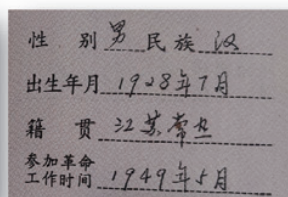 性 别 男 民族 汉
出生年月 1928年7月
籍 贯 江苏常熟
参加革命
工作时间 1949年5月